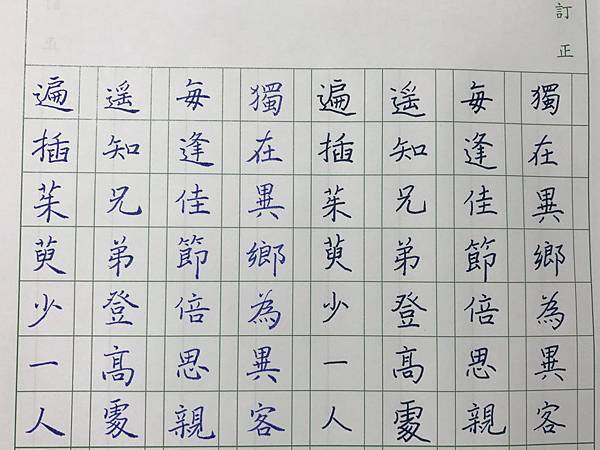 訂正
獨在異鄉為異客
每逢佳節倍思親
遥知兄弟登高處
遍插茱萸少一人
獨在異鄉為異客
每逢佳節倍思親
遥知兄弟登高處
遍插茱萸少一人